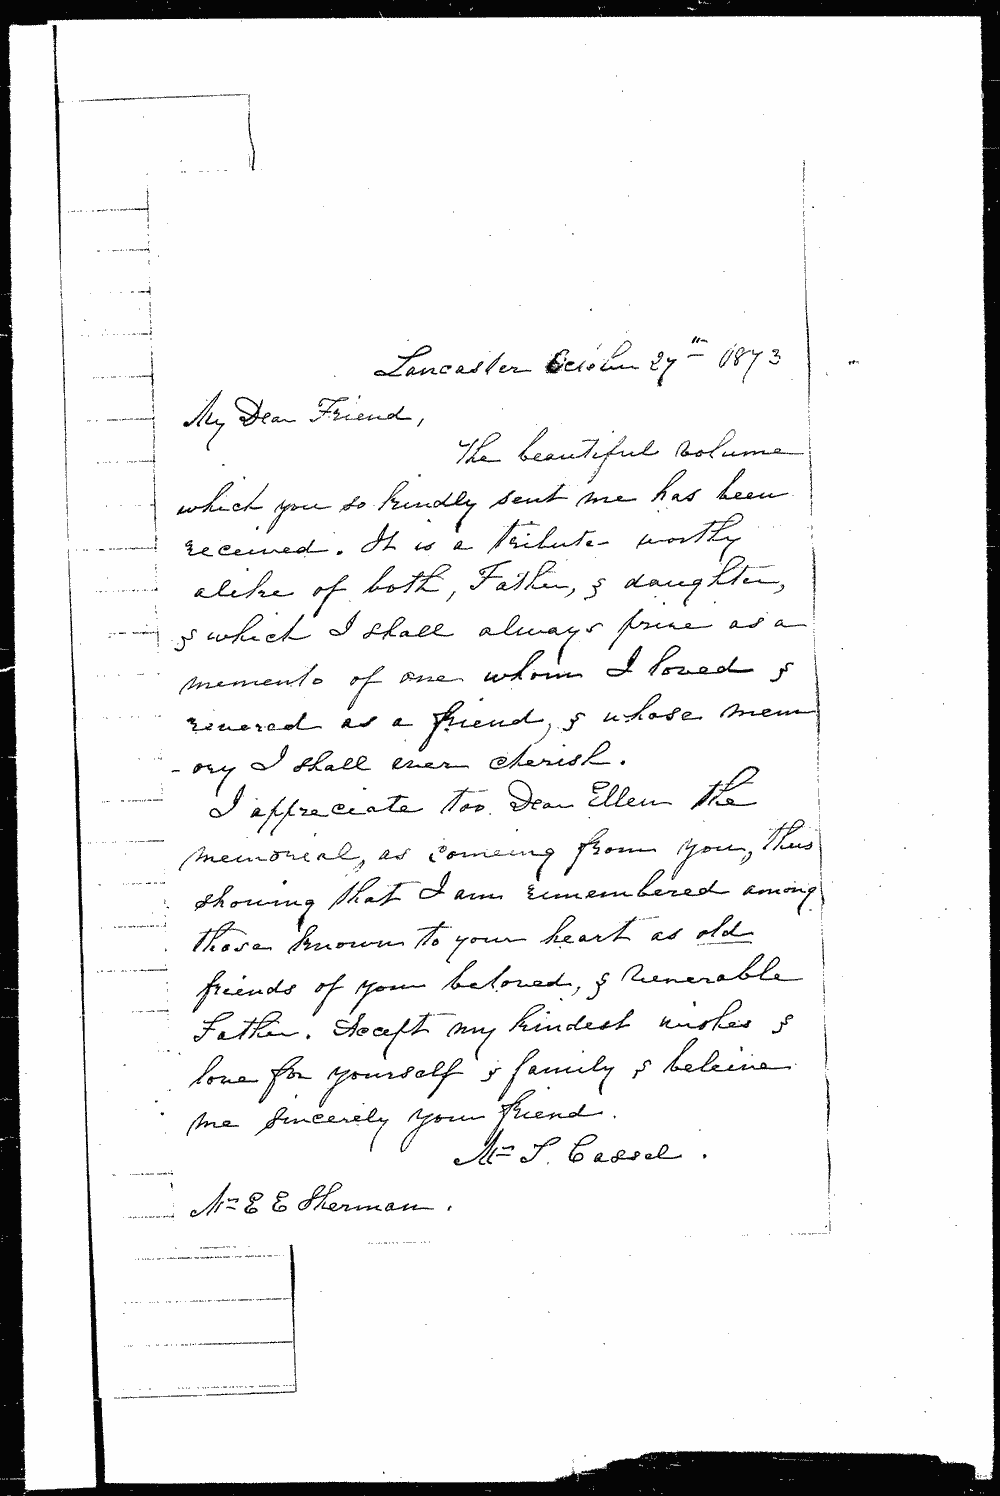 Lancaster October 27th 1873
My Dear Friend,
The beautiful volume
which you so kindly sent me has been
received. It is a tribute worthy
alike of both, Father, & daughter,
& which I shall always prize as a
memento of one whom I loved &
revered as a friend, & whose mem
-ory I shall ever cherish.
I appreciate too Dear Ellen the
memorial, as comeing from you, thus
showing that I am remembered among
those known to your heart as old
friends of your beloved, & venerable
Father. Accept my kindest wishes &
love for yourself & family & beleive
me sincerely your friend.
Mrs T. Cassel.
Mrs E E Sherman.